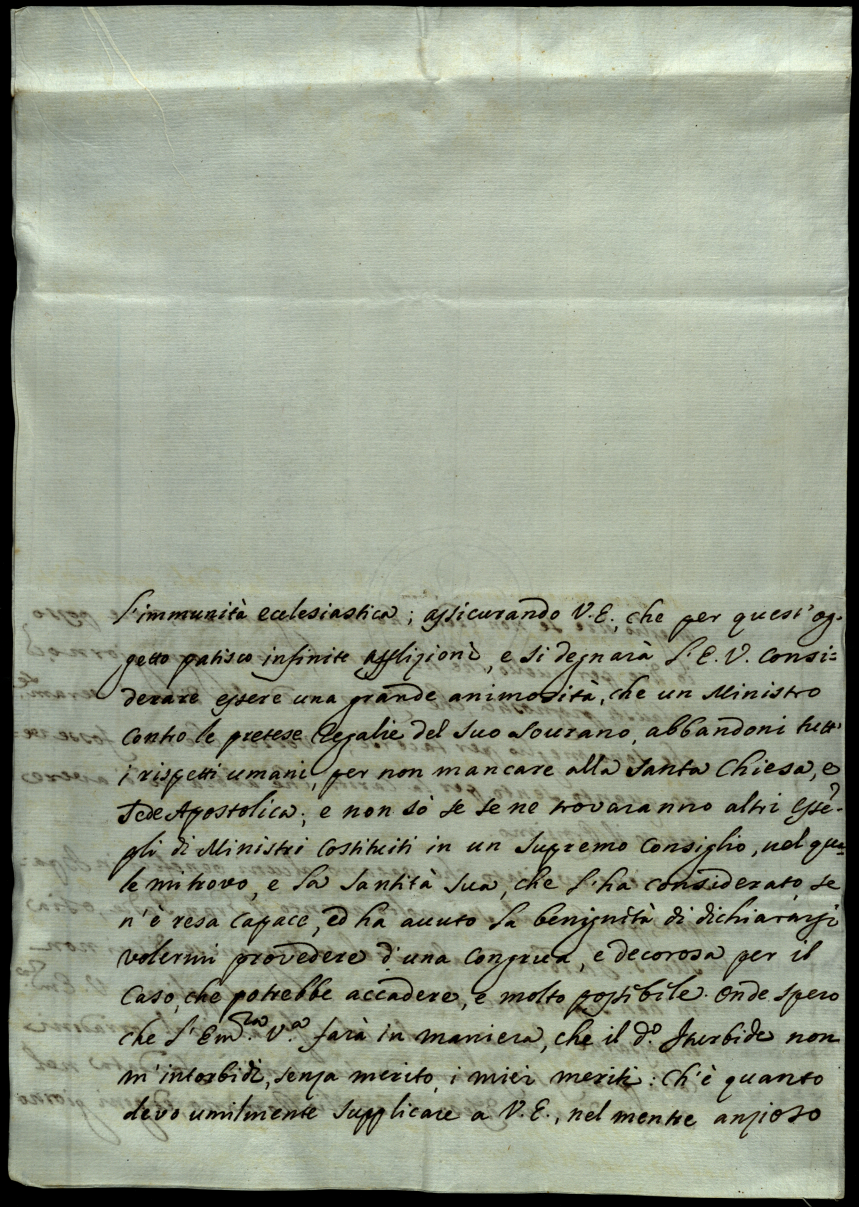 l'immunità ecclesiastica; assicurando V.E., che per quest'og-
getto patisco infinite afflizioni, e si degnarà l'E.V. consi-
derare essere una grande animosità, che un Ministro
contro le pretese Regalie del suo sourano, abbandoni tutti
i rispetti umani, per non mancare alla Santa Chiesa, e
Sede Apostolica; e non sò se se ne trovaranno altri essē-
pli di Ministri costituiti in un supremo Consiglio, nel qua-
le mi trovo, e la Santità Sua, che l'ha considerato, se
n'è resa capace, ed ha auuto la benignità di dichiararsi
volermi provedere d'una congrua, e decorosa per il
caso, che potrebbe accadere, e molto possibile. Onde spero
che l'Em.za V.a farà in maniera, che il d.o Iturbide non
m'intorbidi, senza merito, i miei meriti: ch'è quanto
devo umilmente supplicare a V.E., nel mentre anzioso